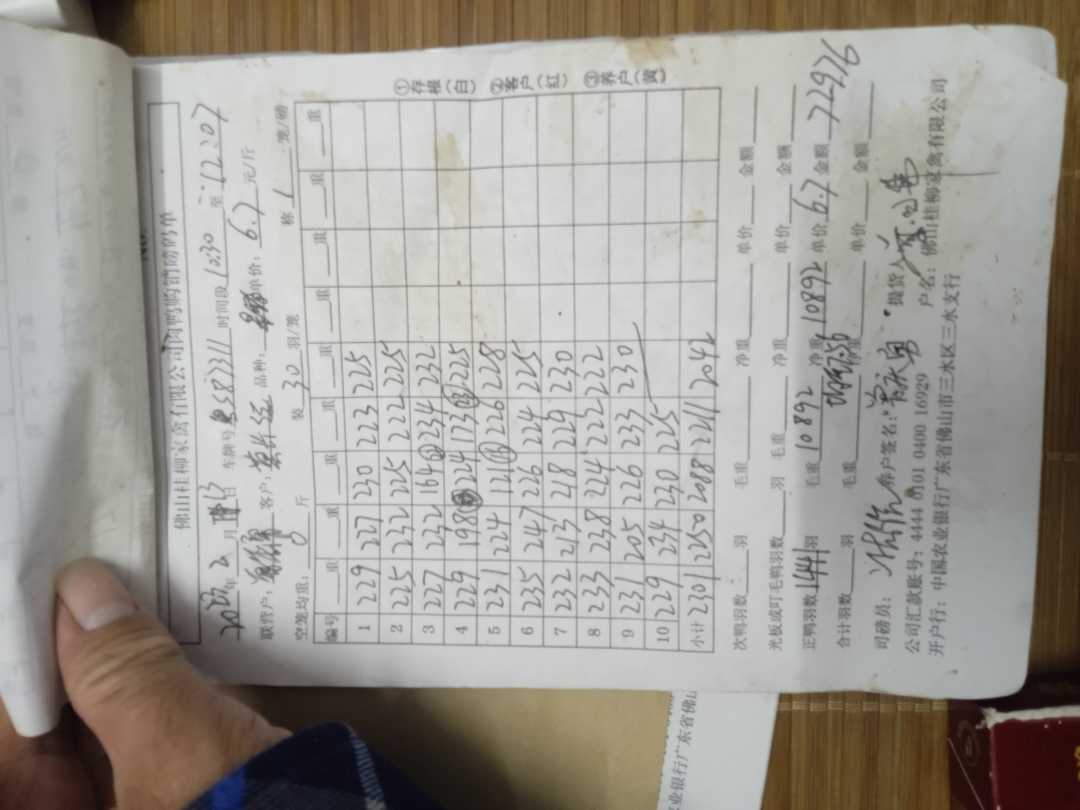 佛山桂柳家禽有限公司肉鸭购销磅码单
年 2 月 日 车牌号 58231 时间段 10:30 至 12:07
联营户: 客户: 品种: 单价: 6.7 元/斤
空笼均重: 0 斤 装 30 羽/笼 称 1 笼/磅
编号 重 重 重 重 重 重 重 重 重
1 229 227 230 223 225
2 225 232 225 222 225
3 227 232 164 234 232
4 229 198 224 123 225
5 231 224 121 226 228
6 235 247 226 224 225
7 232 213 218 229 230
8 233 238 224 222 222
9 231 205 226 233 230
10 229 234 230 225
小计 2301 2250 2088 2211 2042
次鸭羽数 羽 毛重 净重 单价 金额
光板或叮毛鸭羽数 羽 毛重 净重 单价 金额
正鸭羽数 1441 羽 毛重 10892 净重 10892 单价 6.7 金额 72976
合计羽数 羽 毛重 净重 单价 金额
司磅员: 养户签名: 提货人
公司汇款账号: 4444 0101 0400 16929 户名: 佛山桂柳家禽有限公司
开户行: 中国农业银行广东省佛山市三水区三水支行
①存根(白) ②客户(红) ③养户(黄)
农业银行广东省佛山